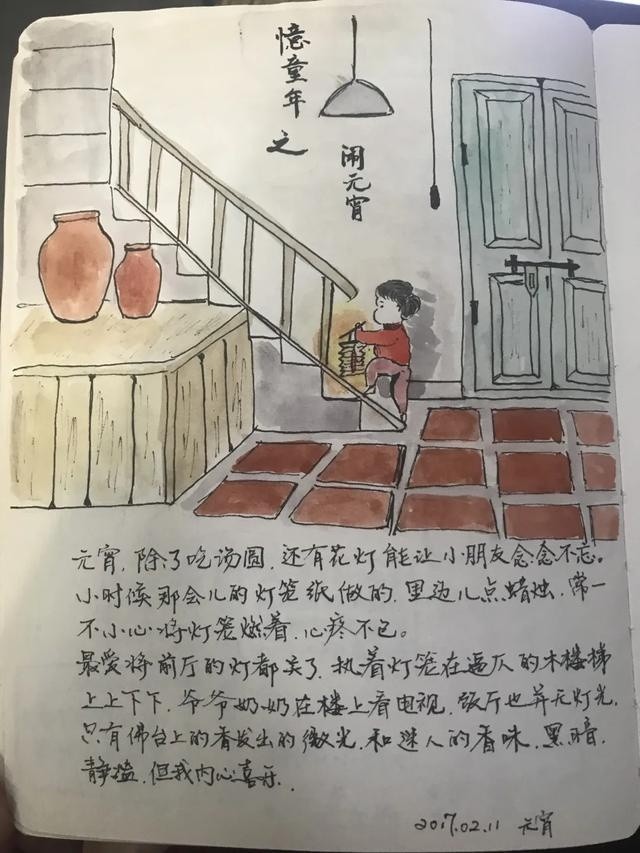 憶童年
之
闹元宵
元宵，除了吃汤圆，还有花灯能让小朋友念念不忘。
小时候那会儿的灯笼纸做的，里边儿点蜡烛，常一
不小心将灯笼燃着，心疼不已。
最爱将前厅的灯都关了，执着灯笼在逼仄的木楼梯
上上下下，爷爷奶奶在楼上看电视，饭厅也并无灯光，
只有佛台上的香发出的微光，和迷人的香味，黑暗，
静谧，但我内心喜乐．
2017.02.11 元宵